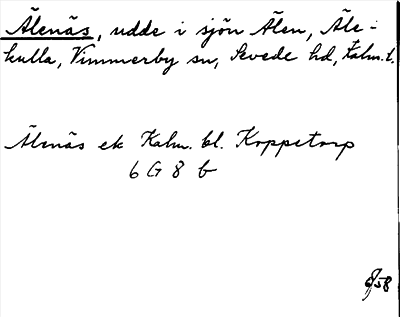 Älenäs, udde i sjön Älen, Äle-
kulla, Vimmerby sn, Sevede hd, Kalm. l.
Älenäs ek Kalm. bl. Koppetorp
6 G 8 b
58